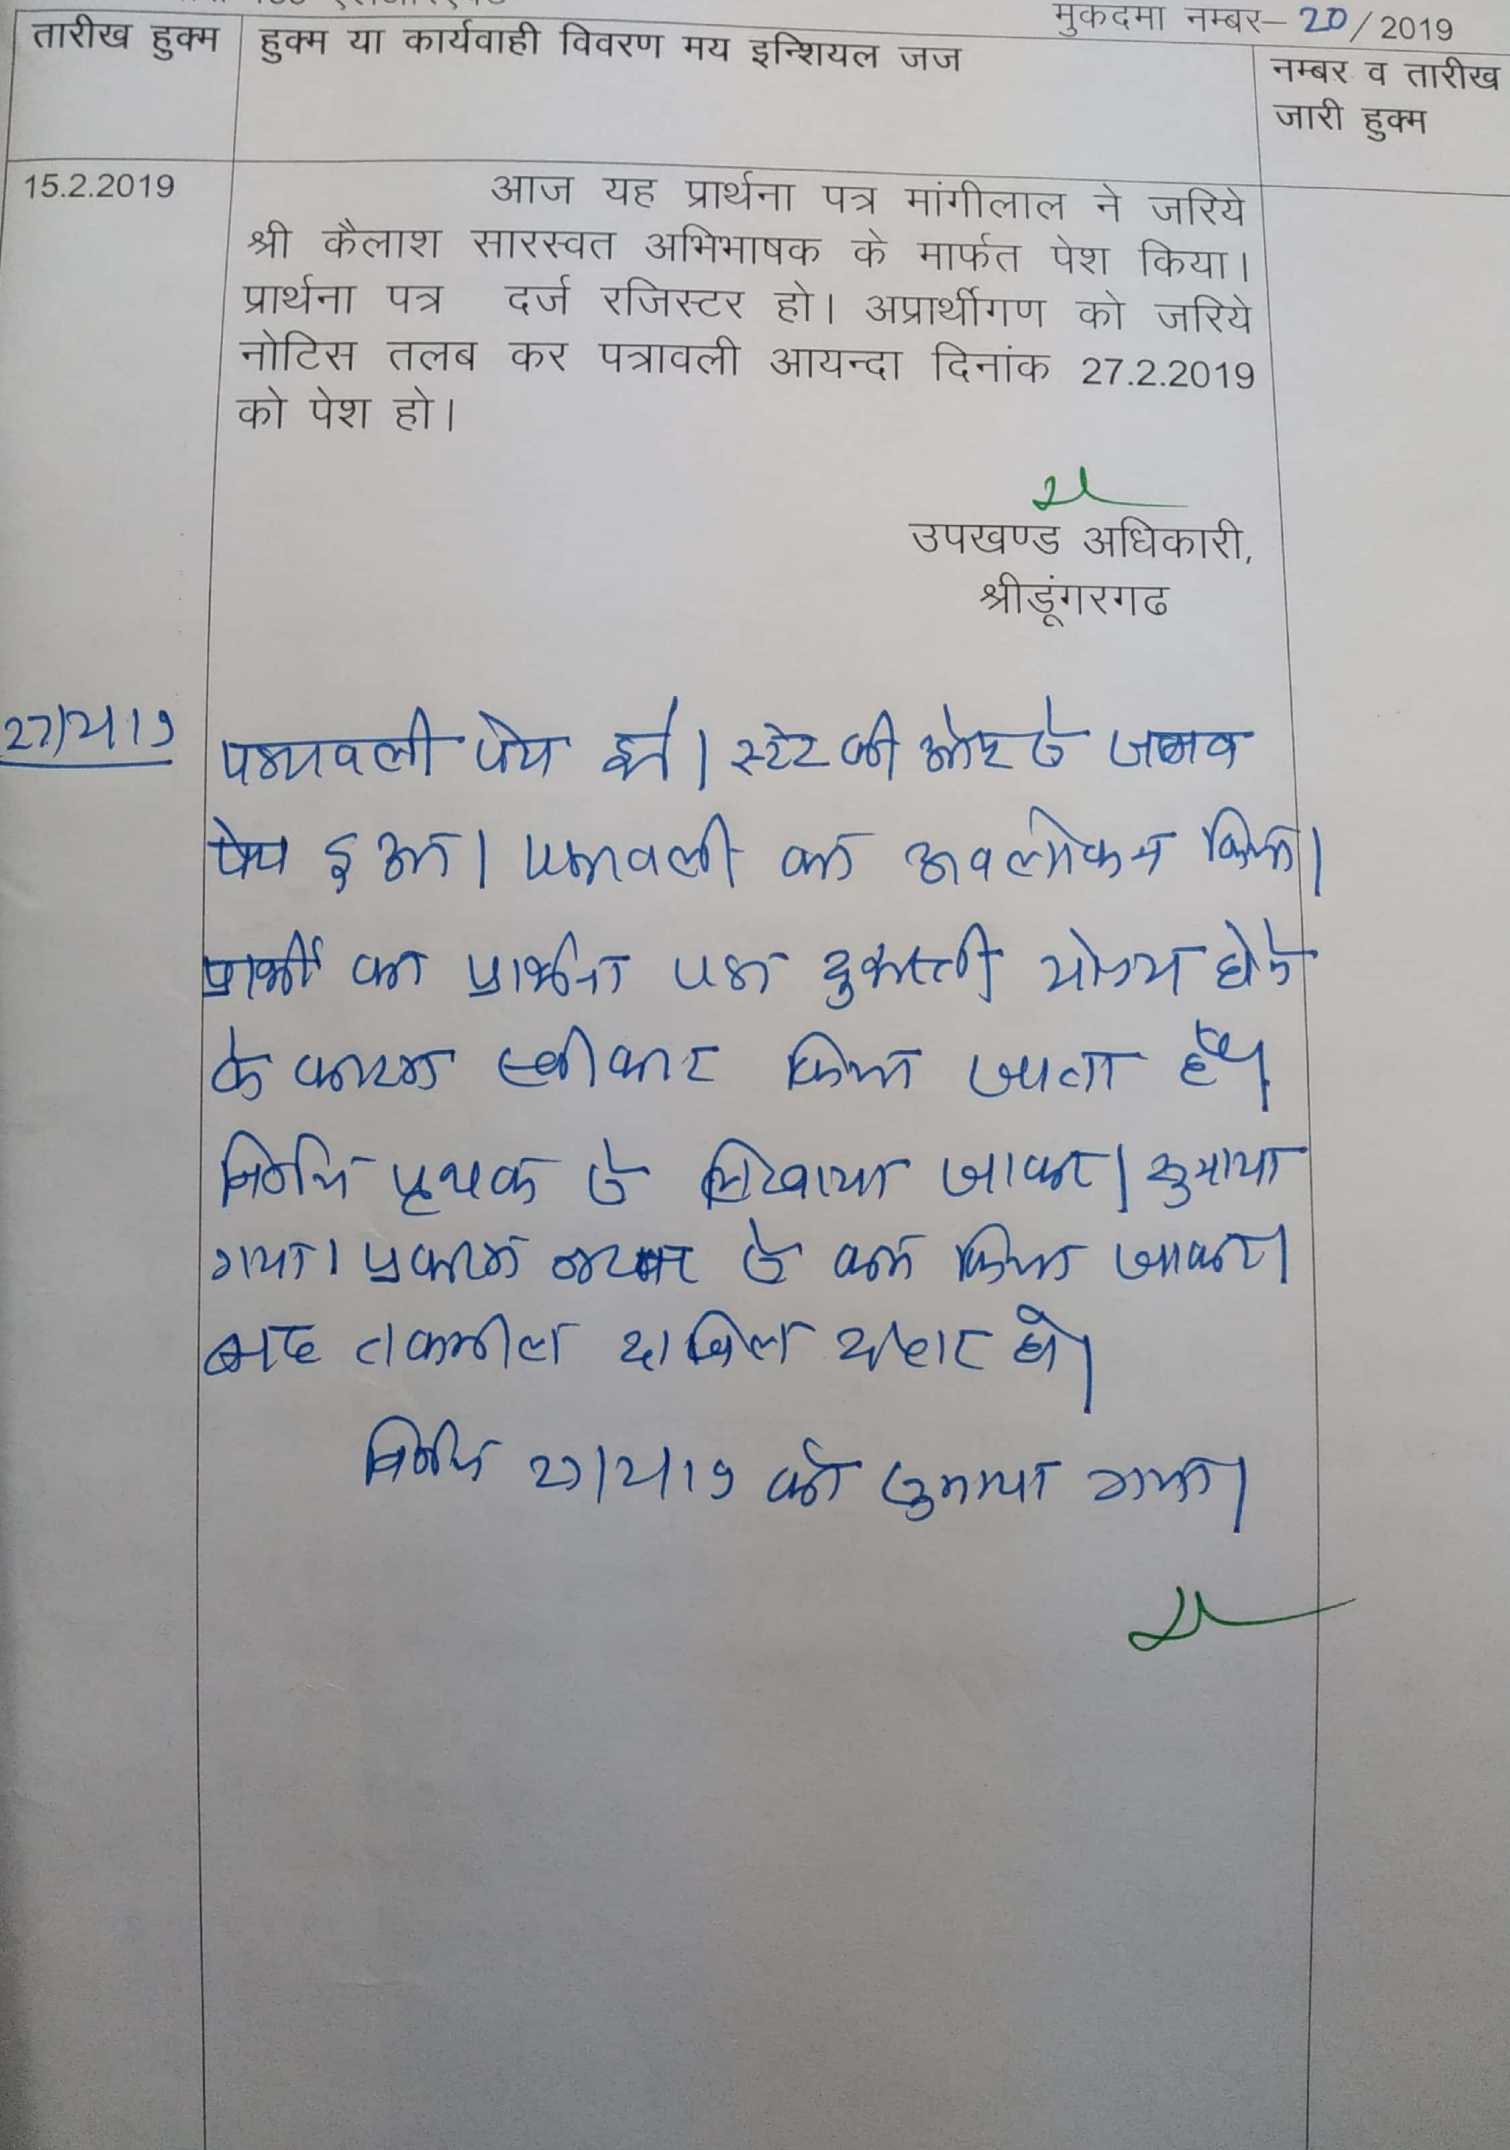 मुकदमा नम्बर– 20/2019
तारीख हुक्म
हुक्म या कार्यवाही विवरण मय इन्शियल जज
नम्बर व तारीख
जारी हुक्म
15.2.2019
आज यह प्रार्थना पत्र मांगीलाल ने जरिये
श्री कैलाश सारस्वत अभिभाषक के मार्फत पेश किया।
प्रार्थना पत्र दर्ज रजिस्टर हो। अप्रार्थीगण को जरिये
नोटिस तलब कर पत्रावली आयन्दा दिनांक 27.2.2019
को पेश हो।
उपखण्ड अधिकारी,
श्रीडूंगरगढ
27/2/19
पत्रावली पेश हुई। स्टेट की ओर से जबाव
पेश हुआ। पत्रावली का अवलोकन किया।
प्रार्थी का प्रार्थना पत्र दुरूस्ती योग्य होने
के कारण स्वीकार किया जाता है।
निर्णय पृथक से लिखाया जाकर सुनाया
गया। प्रकरण नम्बर से कम किया जाकर
बाद तकमील दाखिल दफ्तर हो।
निर्णय 27/2/19 को सुनाया गया।